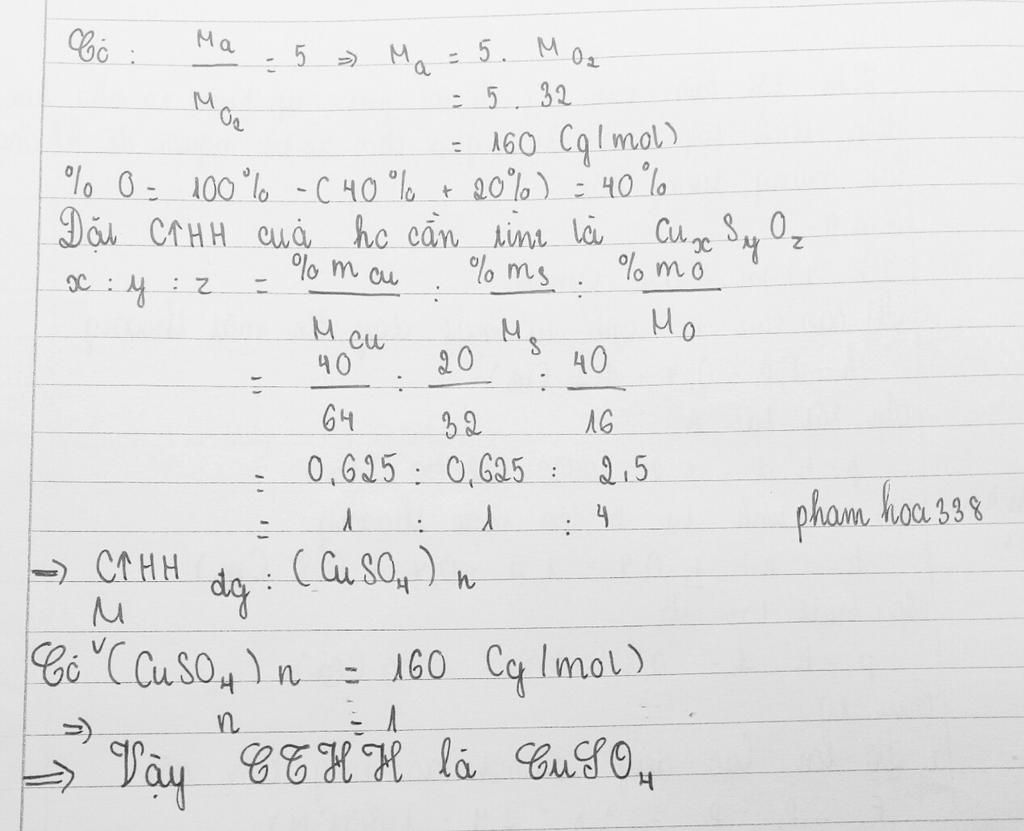 Có : Ma / M O₂ = 5 ⇒ Ma = 5 . M O₂
= 5 . 32
= 160 (g/mol)
% O = 100% - (40% + 20%) = 40%
Đặt CTHH của hc cần tìm là CuₓSᵧO_z
x : y : z = % m Cu / M Cu : % m S / M S : % m O / M O
= 40/64 : 20/32 : 40/16
= 0,625 : 0,625 : 2,5
= 1 : 1 : 4
pham hoa 338
⇒ CTHH đg : (CuSO₄) n
Có M (CuSO₄) n = 160 (g/mol)
⇒ n = 1
⇒ Vậy CTHH là CuSO₄